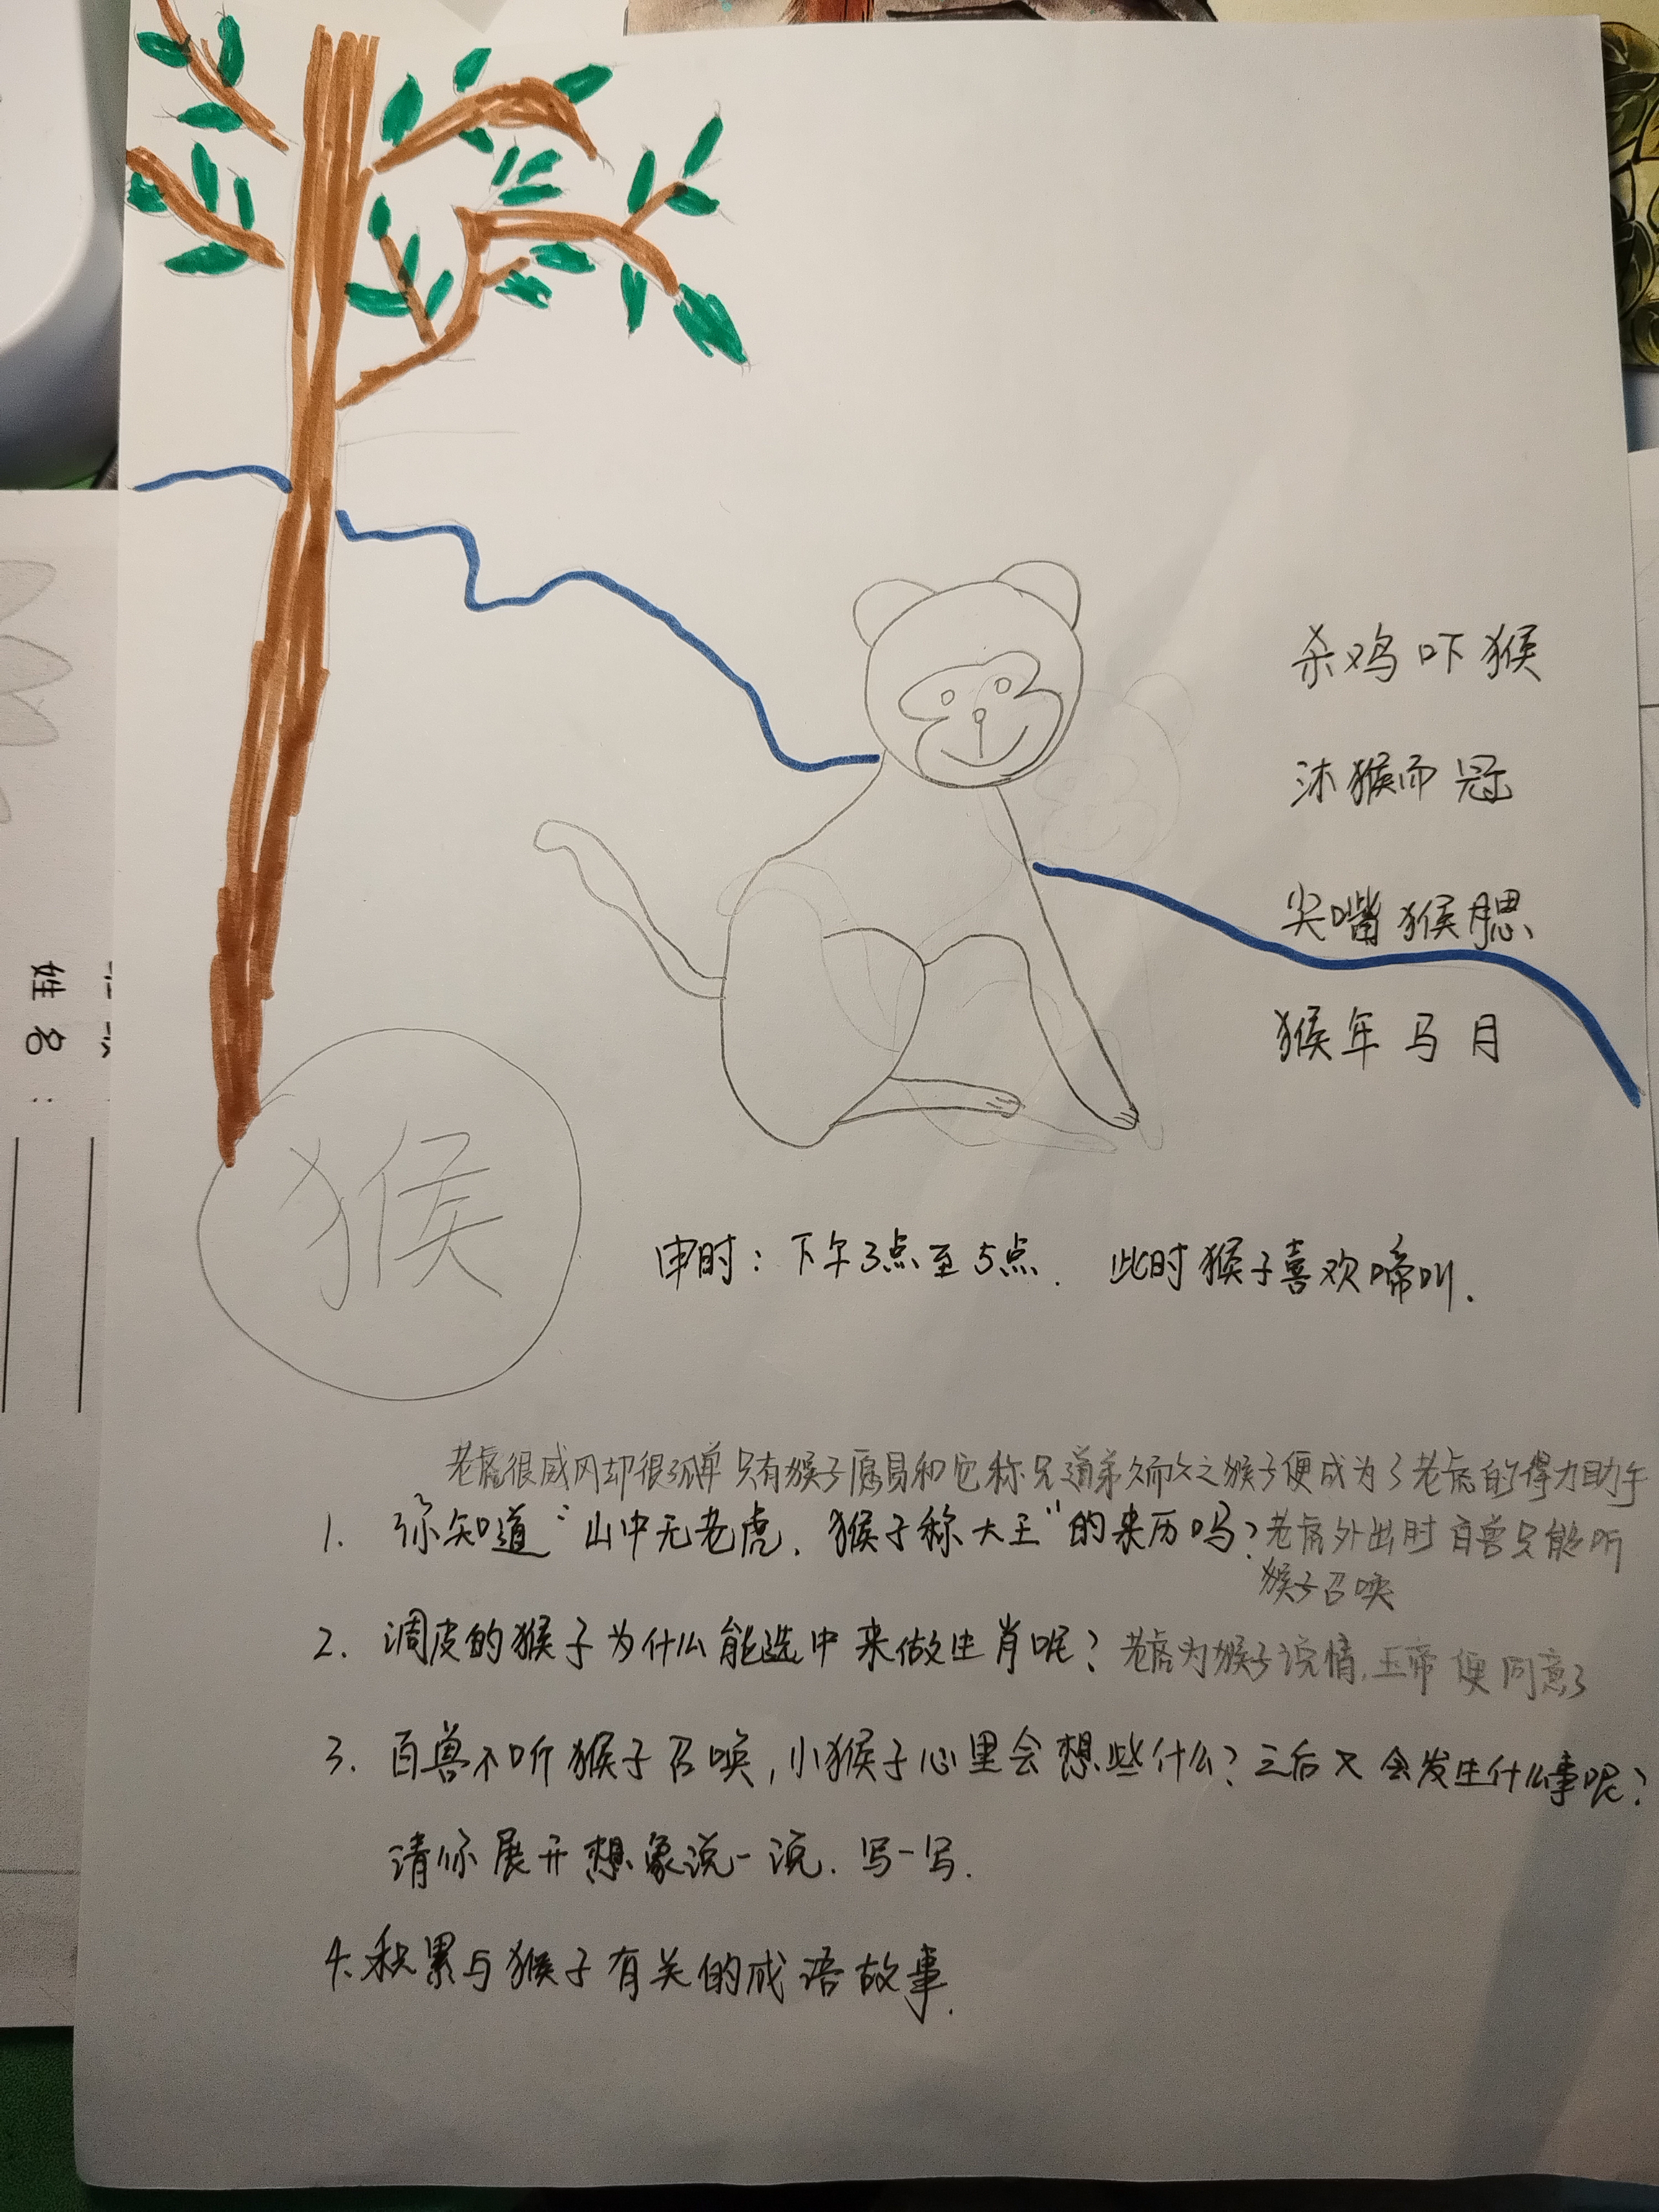 杀鸡吓猴
沐猴而冠
尖嘴猴腮
猴年马月
姓名：
猴
申时：下午3点至5点．此时猴子喜欢啼叫．
老虎很威风却很孤单只有猴子愿易和它称兄道弟久而久之猴子便成为了老虎的得力助手
1. 你知道“山中无老虎．猴子称大王”的来历吗？老虎外出时百兽只能听
猴子召唤
2. 调皮的猴子为什么能选中来做生肖呢？老虎为猴子说情，玉帝便同意了
3. 百兽不听猴子召唤，小猴子心里会想些什么？之后又会发生什么事呢？
请你展开想象说一说．写一写．
4. 积累与猴子有关的成语故事．